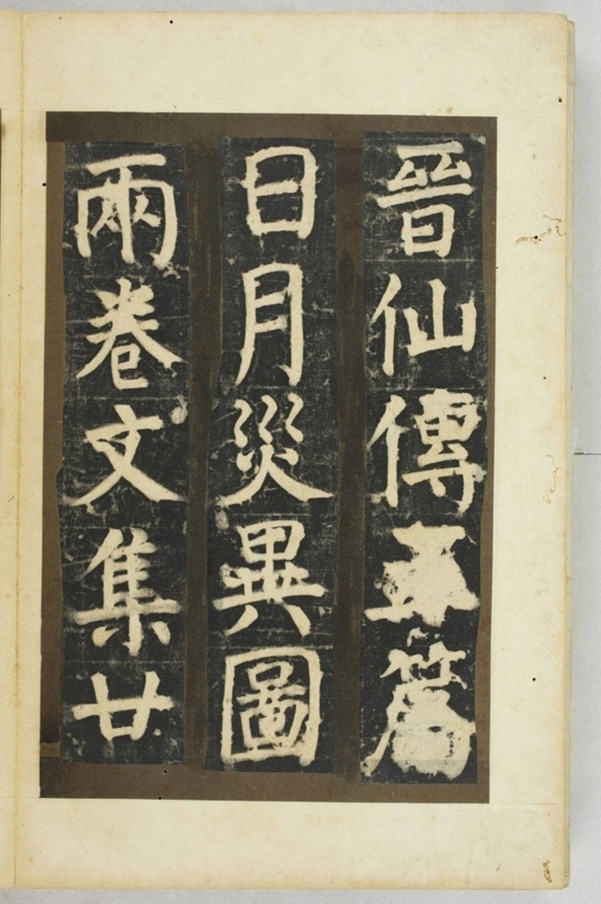 晉仙傳五篇
日月災異圖
兩卷文集廿